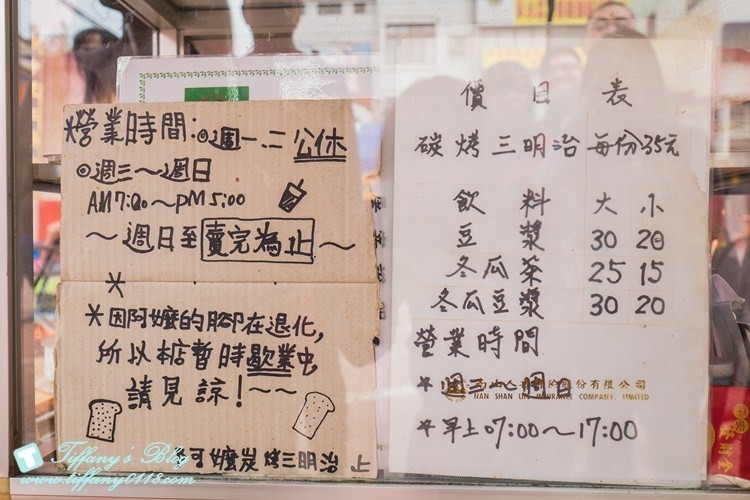 *營業時間:⊙週一.二公休
⊙週三～週日
AM7:00～PM5:00
～週日至賣完為止～
*
*因阿嬤的腳在退化,
所以本店暫時歇業中,
請見諒!～～
可嬤炭烤三明治 上
價目表
碳烤三明治 每份35元
飲料 大 小
豆漿 30 20
冬瓜茶 25 15
冬瓜豆漿 30 20
營業時間
*週三～週日
南山人壽保險股份有限公司
NAN SHAN LIFE INSURANCE COMPANY, LIMITED
*早上07:00～17:00
Tiffany's Blog
www.tiffany0118.com